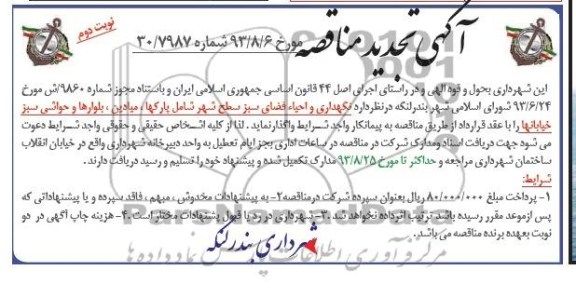 نوبت دوم
آگهی تجدید مناقصه مورخ ۹۳/۸/۶ شماره ۳۰/۷۹۸۷
این شهرداری بحول و قوه الهی و در راستای اجرای اصل ۴۴ قانون اساسی جمهوری اسلامی ایران و باستناد مجوز شماره ۹۸۶۰/ش مورخ
۹۳/۶/۲۴ شورای اسلامی شهر بندرلنگه درنظردارد نگهداری و احیاء فضای سبز سطح شهر شامل پارکها، میادین، بلوارها و حواشی سبز
خیابانها را با عقد قرارداد از طریق مناقصه به پیمانکار واجد شرایط واگذار نماید. لذا از کلیه اشخاص حقیقی و حقوقی واجد شرایط دعوت
می شود جهت دریافت اسناد ومدارک شرکت در مناقصه در ساعات اداری بجز ایام تعطیل به واحد دبیرخانه شهرداری واقع در خیابان انقلاب
ساختمان شهرداری مراجعه و حداکثر تا مورخ ۹۳/۸/۲۵ مدارک تکمیل شده و پیشنهاد خود را تسلیم و رسید دریافت دارند.
شرایط:
۱- پرداخت مبلغ ۸۰/۰۰۰/۰۰۰ ریال بعنوان سپرده شرکت درمناقصه ۲- به پیشنهادات مخدوش، مبهم، فاقد سپرده و یا پیشنهاداتی که
پس ازموعد مقرر رسیده باشد ترتیب اثرداده نخواهد شد. ۳- شهرداری در رد یا قبول پیشنهادات مختار است. ۴- هزینه چاپ آگهی در دو
نوبت بعهده برنده مناقصه می باشد.
شهرداری بندرلنگه